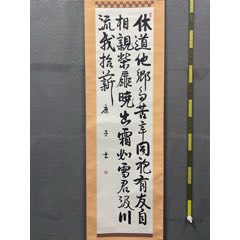 休道他郷多苦辛同袍有友自
相親柴扉曉出霜如雪君汲川
流我拾薪